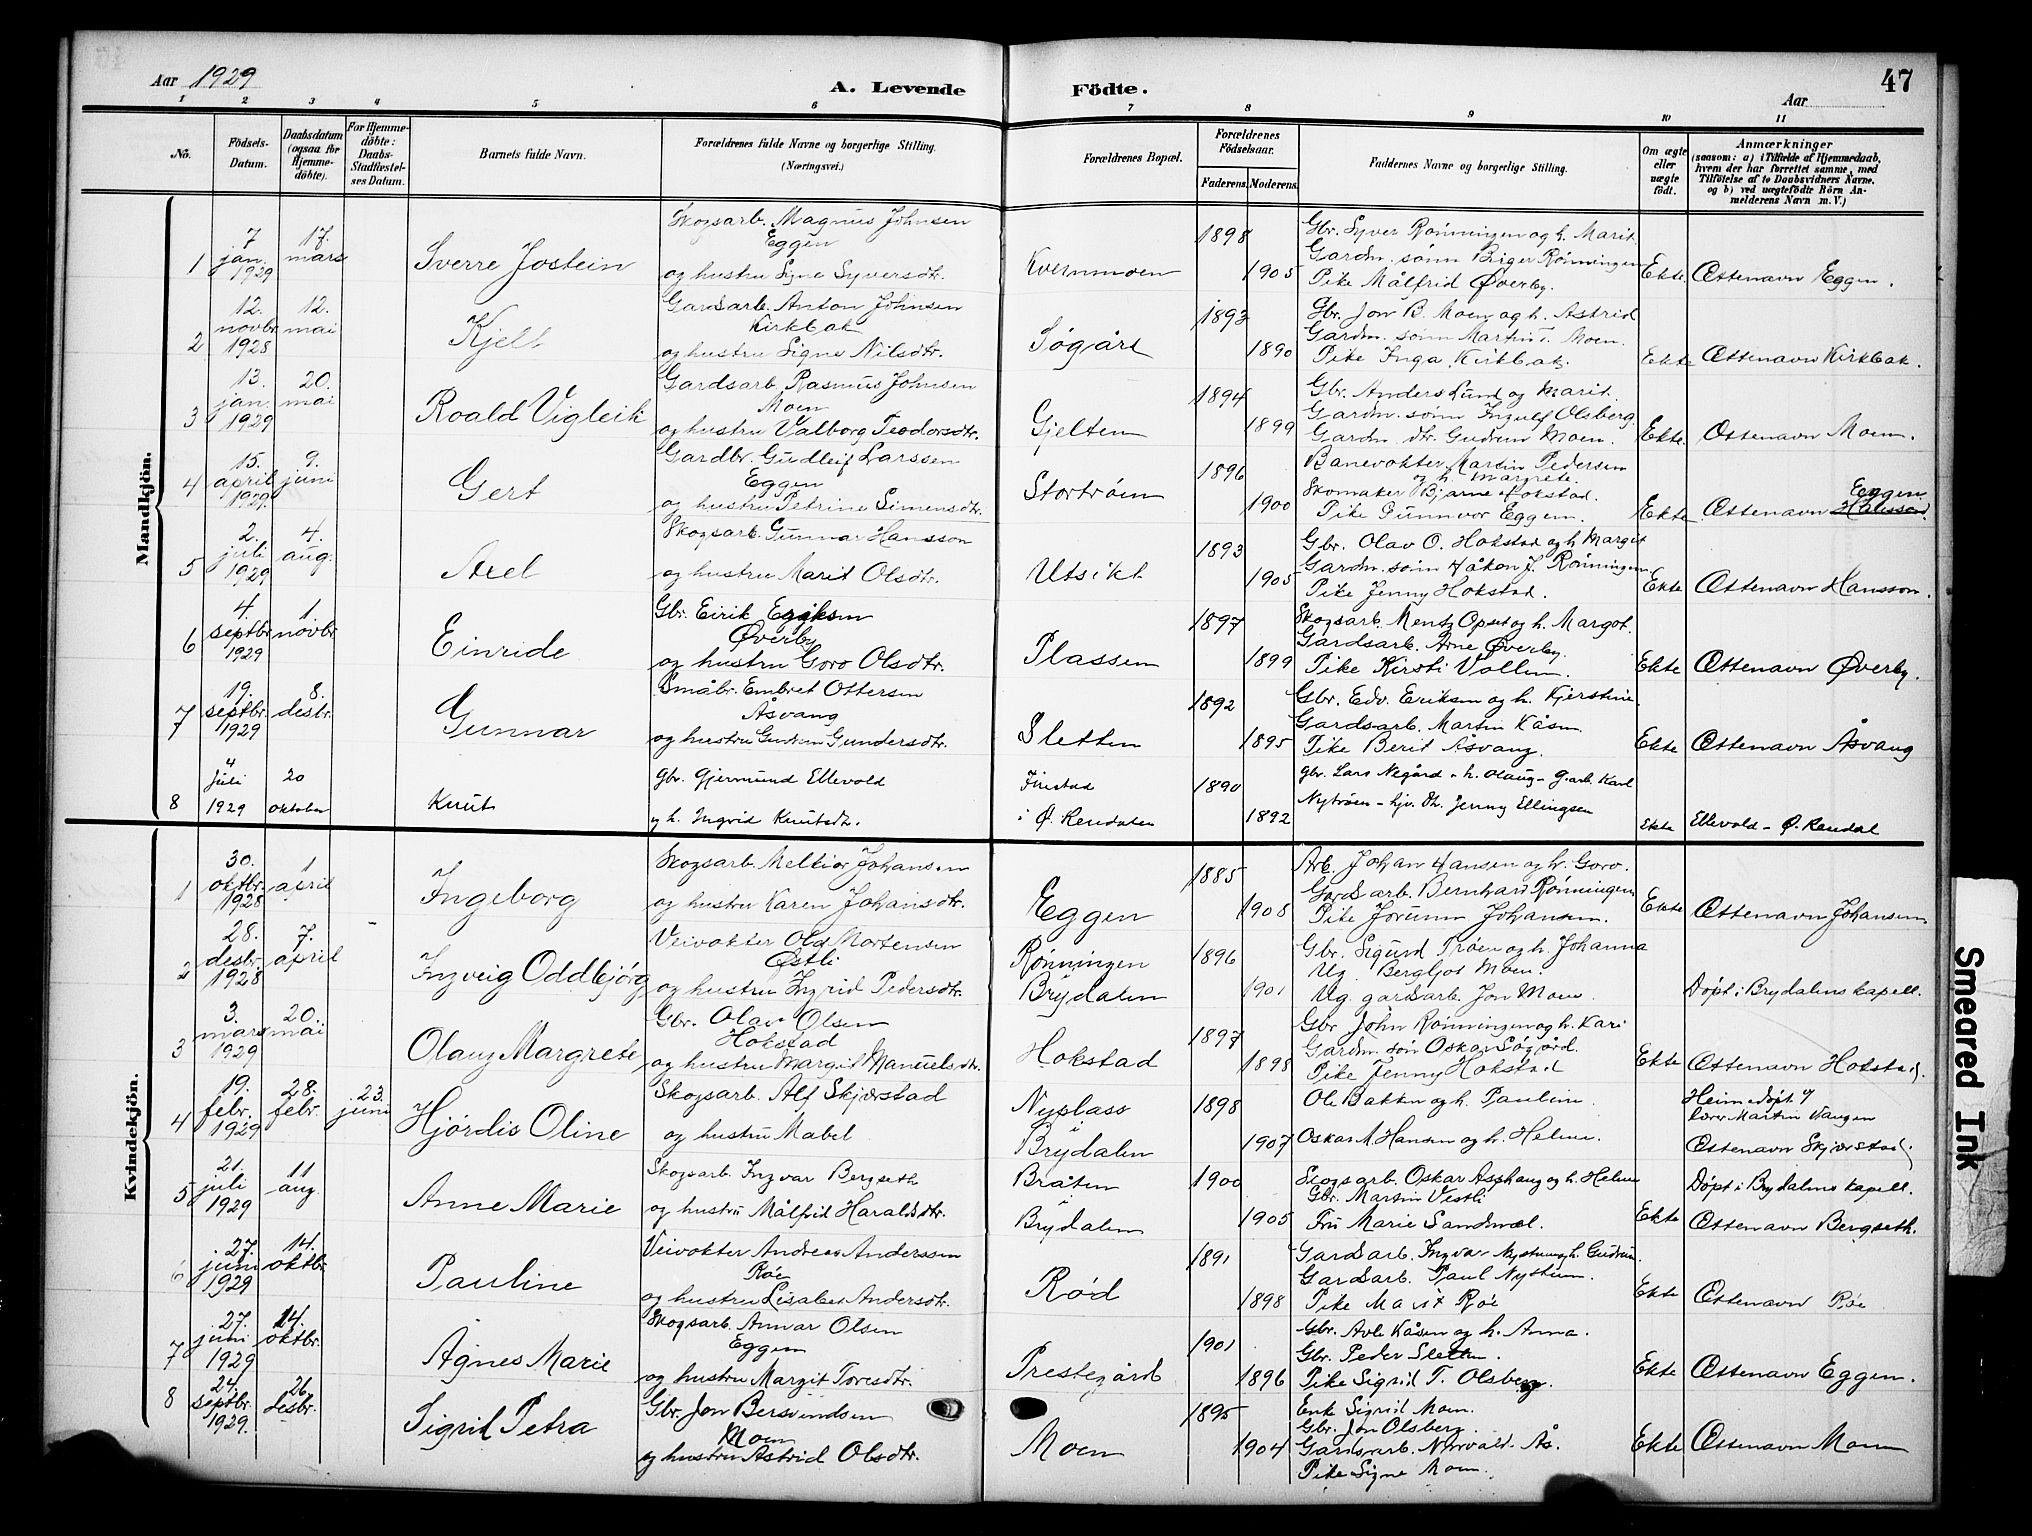 Aar 1929
A. Levende Födte.
Aar
47
1 2 3 4 5 6 7 8 9 10 11
No.
Födsels-Datum.
Daabsdatum (ogsaa for Hjemme-döbte).
For Hjemme-döbte: Daabs-Stadfæstel-ses Datum.
Barnets fulde Navn.
Forældrenes fulde Navne og borgerlige Stilling. (Næringsvei.)
Forældrenes Bopæl.
Forældrenes Födselsaar.
Faderens. Moderens.
Faddernes Navne og borgerlige Stilling.
Om ægte eller uægte födt.
Anmærkninger
(saasom: a) i Tilfælde af Hjemmedaab, hvem der har forrettet samme, med Tilföielse af to Daabsvidners Navne, og b) ved uægtefödte Börn An-melderens Navn m. V.)
Mandkjön.
1 7 jan. 1929 17. mars Sverre Jostein
Skogsarb. Magnus Johnsen
Eggen
og hustru Signe Syversdtr.
Kvernmoen 1898 1905
Gbr. Syver Rønningen og h. Marit.
Gardm. sønn Birger Rønningen
Pike Målfrid Øverby.
Ekte Ættenavn Eggen.
2 12. novbr. 1928 12. mai Kjell
Gardsarb. Anton Johnsen
Kirkbak
og hustru Signe Nilsdtr.
Søgård 1893 1890
Gbr. Jon B. Moen og h. Astrid
Gardm. sønn Martin T. Moen.
Pike Inga Kirkbak.
Ekte Ættenavn Kirkbak.
3 13. jan. 1929 20. mai Roald Vigleik
Gardsarb. Rasmus Johnsen
Moen
og hustru Valborg Teodorsdtr.
Gjelten 1894 1899
Gbr. Anders Lund og Marit.
Gardm. sønn Ingulf Olsberg.
Gardm. dtr. Gudrun Moen.
Ekte. Ættenavn Moen.
4 15. april 1929. 9. juni Gert
Gardbr. Gudleif Larssen
Eggen
og hustru Petrine Simensdtr.
Stortrøen 1896 1900
Banevokter Martin Pedersen
og h. Margrete.
Skomaker Bjarne Hokstad.
Pike Gunnvor Eggen.
Ekte Ættenavn Eggen.
5 2. juli 1929 4. aug. Axel
Skogsarb. Gunnar Hansson
og hustru Marit Olsdtr.
Utsikt 1893 1905
Gbr. Olav O. Hokstad og h. Margit
Gardm. sønn Håkon J. Rønningen
Pike Jenny Hokstad.
Ekte Ættenavn Hansson.
6 4. septbr. 1929 1. novbr. Einride
Gbr. Eirik Eriksen
Øverby
og hustru Goro Olsdtr.
Plassen 1897 1899
Skogsarb. Mentz Opset og h. Margot.
Gardsarb. Arne Øverby.
Pike Kirsti Vollen.
Ekte Ættenavn Øverby.
7 19. septbr. 1929 8. desbr. Gunnar
Småbr. Embret Ottersen
Åsvang
og hustru Gudrun Gundersdtr.
Sletten 1892 1895
Gbr. Edv. Eriksen og h. Kjerstine.
Gardsarb. Martin Kåsen
Pike Berit Åsvang.
Ekte Ættenavn Åsvang
8 4 juli 1929 20 oktober Knut
gbr. Gjermund Ellevold
og h. Ingrid Knutsdtr.
Finstad i Ø. Rendalen 1890 1892
gbr. Lars Negård - h. Olaug - g.arb. Karl
Nytrøen - hjv. dtr. Jenny Ellingsen
Ekte Ellevold - Ø. Rendal
Kvindekjön.
1 30. oktbr. 1928 1 april Ingeborg
Skogsarb. Melkior Johansen
og hustru Karen Johansdtr.
Eggen 1885 1908
Arb. Johan Hansen og h. Goro.
Gardsarb. Bernhard Rønningen
Pike Jorunn Johansen.
Ekte Ættenavn Johansen
2 28. desbr. 1928 7. april Ingveig Oddbjørg
Veivokter Ola Mortensen
Østli
og hustru Ingrid Pedersdtr.
Rønningen Brydalen 1896 1901
Gbr. Sigurd Trøen og h. Johanna
Ug. Bergljot Moen.
Ug. gardsarb. Jon Moen
Døpt i Brydalens kapell.
3 3. mars 1929 20. mai Olaug Margrete
Gbr. Olav Olsen
Hokstad
og hustru Margit Manuelsdtr.
Hokstad 1897 1898
Gbr. John Rønningen og h. Kari
Gardm. søn Oskar Søgård.
Pike Jenny Hokstad
Ekte Ættenavn Hokstad.
4 19. febr. 1929 28. febr. 23. juni Hjørdis Oline
Skogsarb. Alf Skjærstad
og hustru Mabel
Nyplass i Brydalen 1898 1907
Ole Bakken og h. Pauline.
Oskar M. Hansen og h. Helene.
Heimedøpt v/
lærer Martin Vangen
Ættenavn Skjærstad.
5 21. juli 1929 11 aug. Anne Marie
Skogsarb. Ingvar Bergseth
og hustru Målfrid Haraldsdtr.
Bråten i Brydalen 1900 1905
Skogsarb. Oskar Asphaug og h. Helene
Gbr. Martin Vestli
Fru Marie Sandmæl.
Ekte Døpt i Brydalens kapell.
Ættenavn Bergseth.
6 27. juni 1929 14. oktbr. Pauline
Veivokter Andreas Anderssen
Røe
og hustru Lisabet Andersdtr.
Rød 1891 1898
Gardsarb. Ingvar Nystuen og h. Gudrun
Gardsarb. Paul Nystuen.
Pike Marit Røe
Ekte Ættenavn Røe
7 27. juni 1929 14. oktbr. Agnes Marie
Skogsarb. Annar Olsen
Eggen
og hustru Margit Toresdtr.
Prestegård 1901 1896
Gbr. Avle Kåsen og h. Anna.
Gbr. Peder Sletten.
Pike Sigrid T. Olsberg.
Ekte Ættenavn Eggen.
8 24. septbr. 1929. 26. desbr. Sigrid Petra
Gbr. Jon Bersvendsen
Moen
og hustru Astrid Olsdtr.
Moen 1895 1904
Enke Sigrid Moen.
Gbr. Jon Olsberg.
Gardsarb. Norvald Ås.
Pike Signe Moen.
Ekte Ættenavn Moen
Smeared Ink